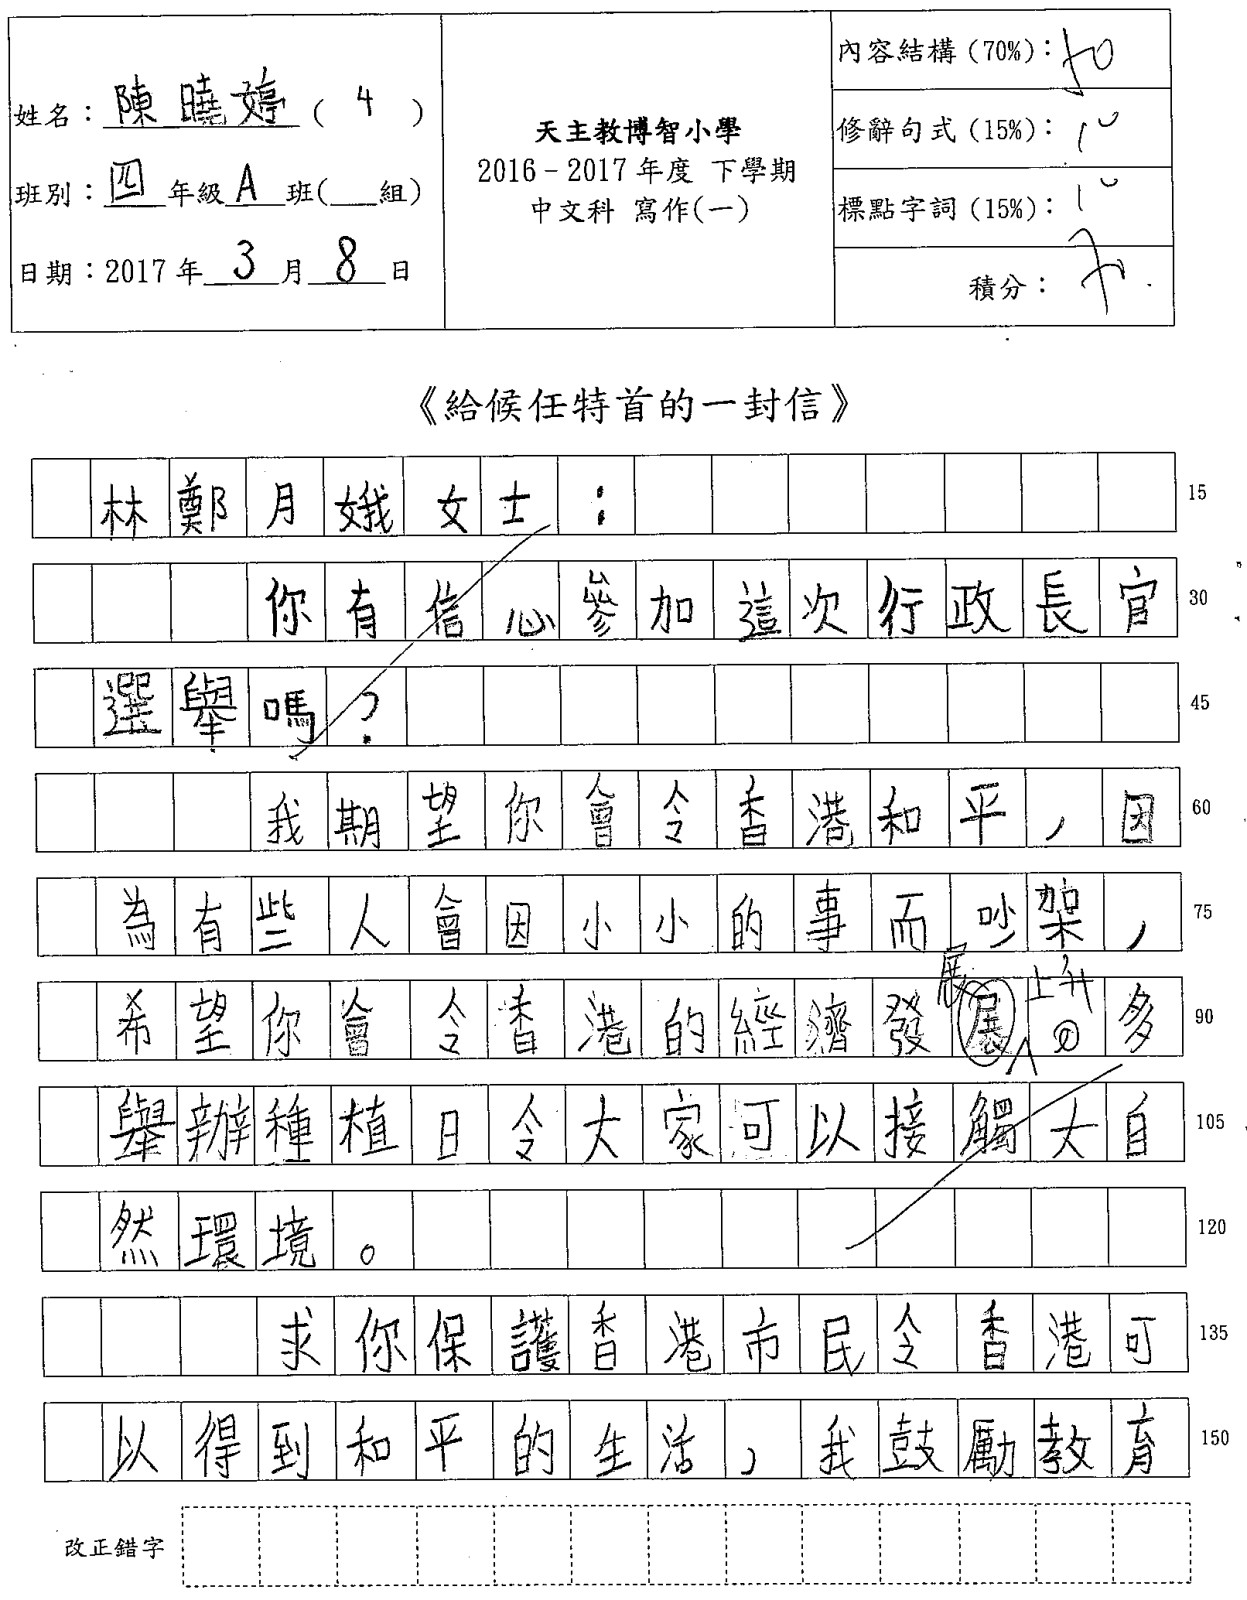 姓名：陳曉婷 ( 4 )
班別：四年級A班(___組)
日期：2017年3月8日
天主教博智小學
2016－2017年度 下學期
中文科 寫作(一)
內容結構 (70%)：50
修辭句式 (15%)：10
標點字詞 (15%)：10
積分：70
《給候任特首的一封信》
林鄭月娥女士： 15
你有信心參加這次行政長官 30
選舉嗎？ 45
我期望你會令香港和平，因 60
為有些人會因小小的事而吵架， 75
展 上升
希望你會令香港的經濟發展 多 90
舉辦種植日令大家可以接觸大自 105
然環境。 120
求你保護香港市民令香港可 135
以得到和平的生活，我鼓勵教育 150
改正錯字